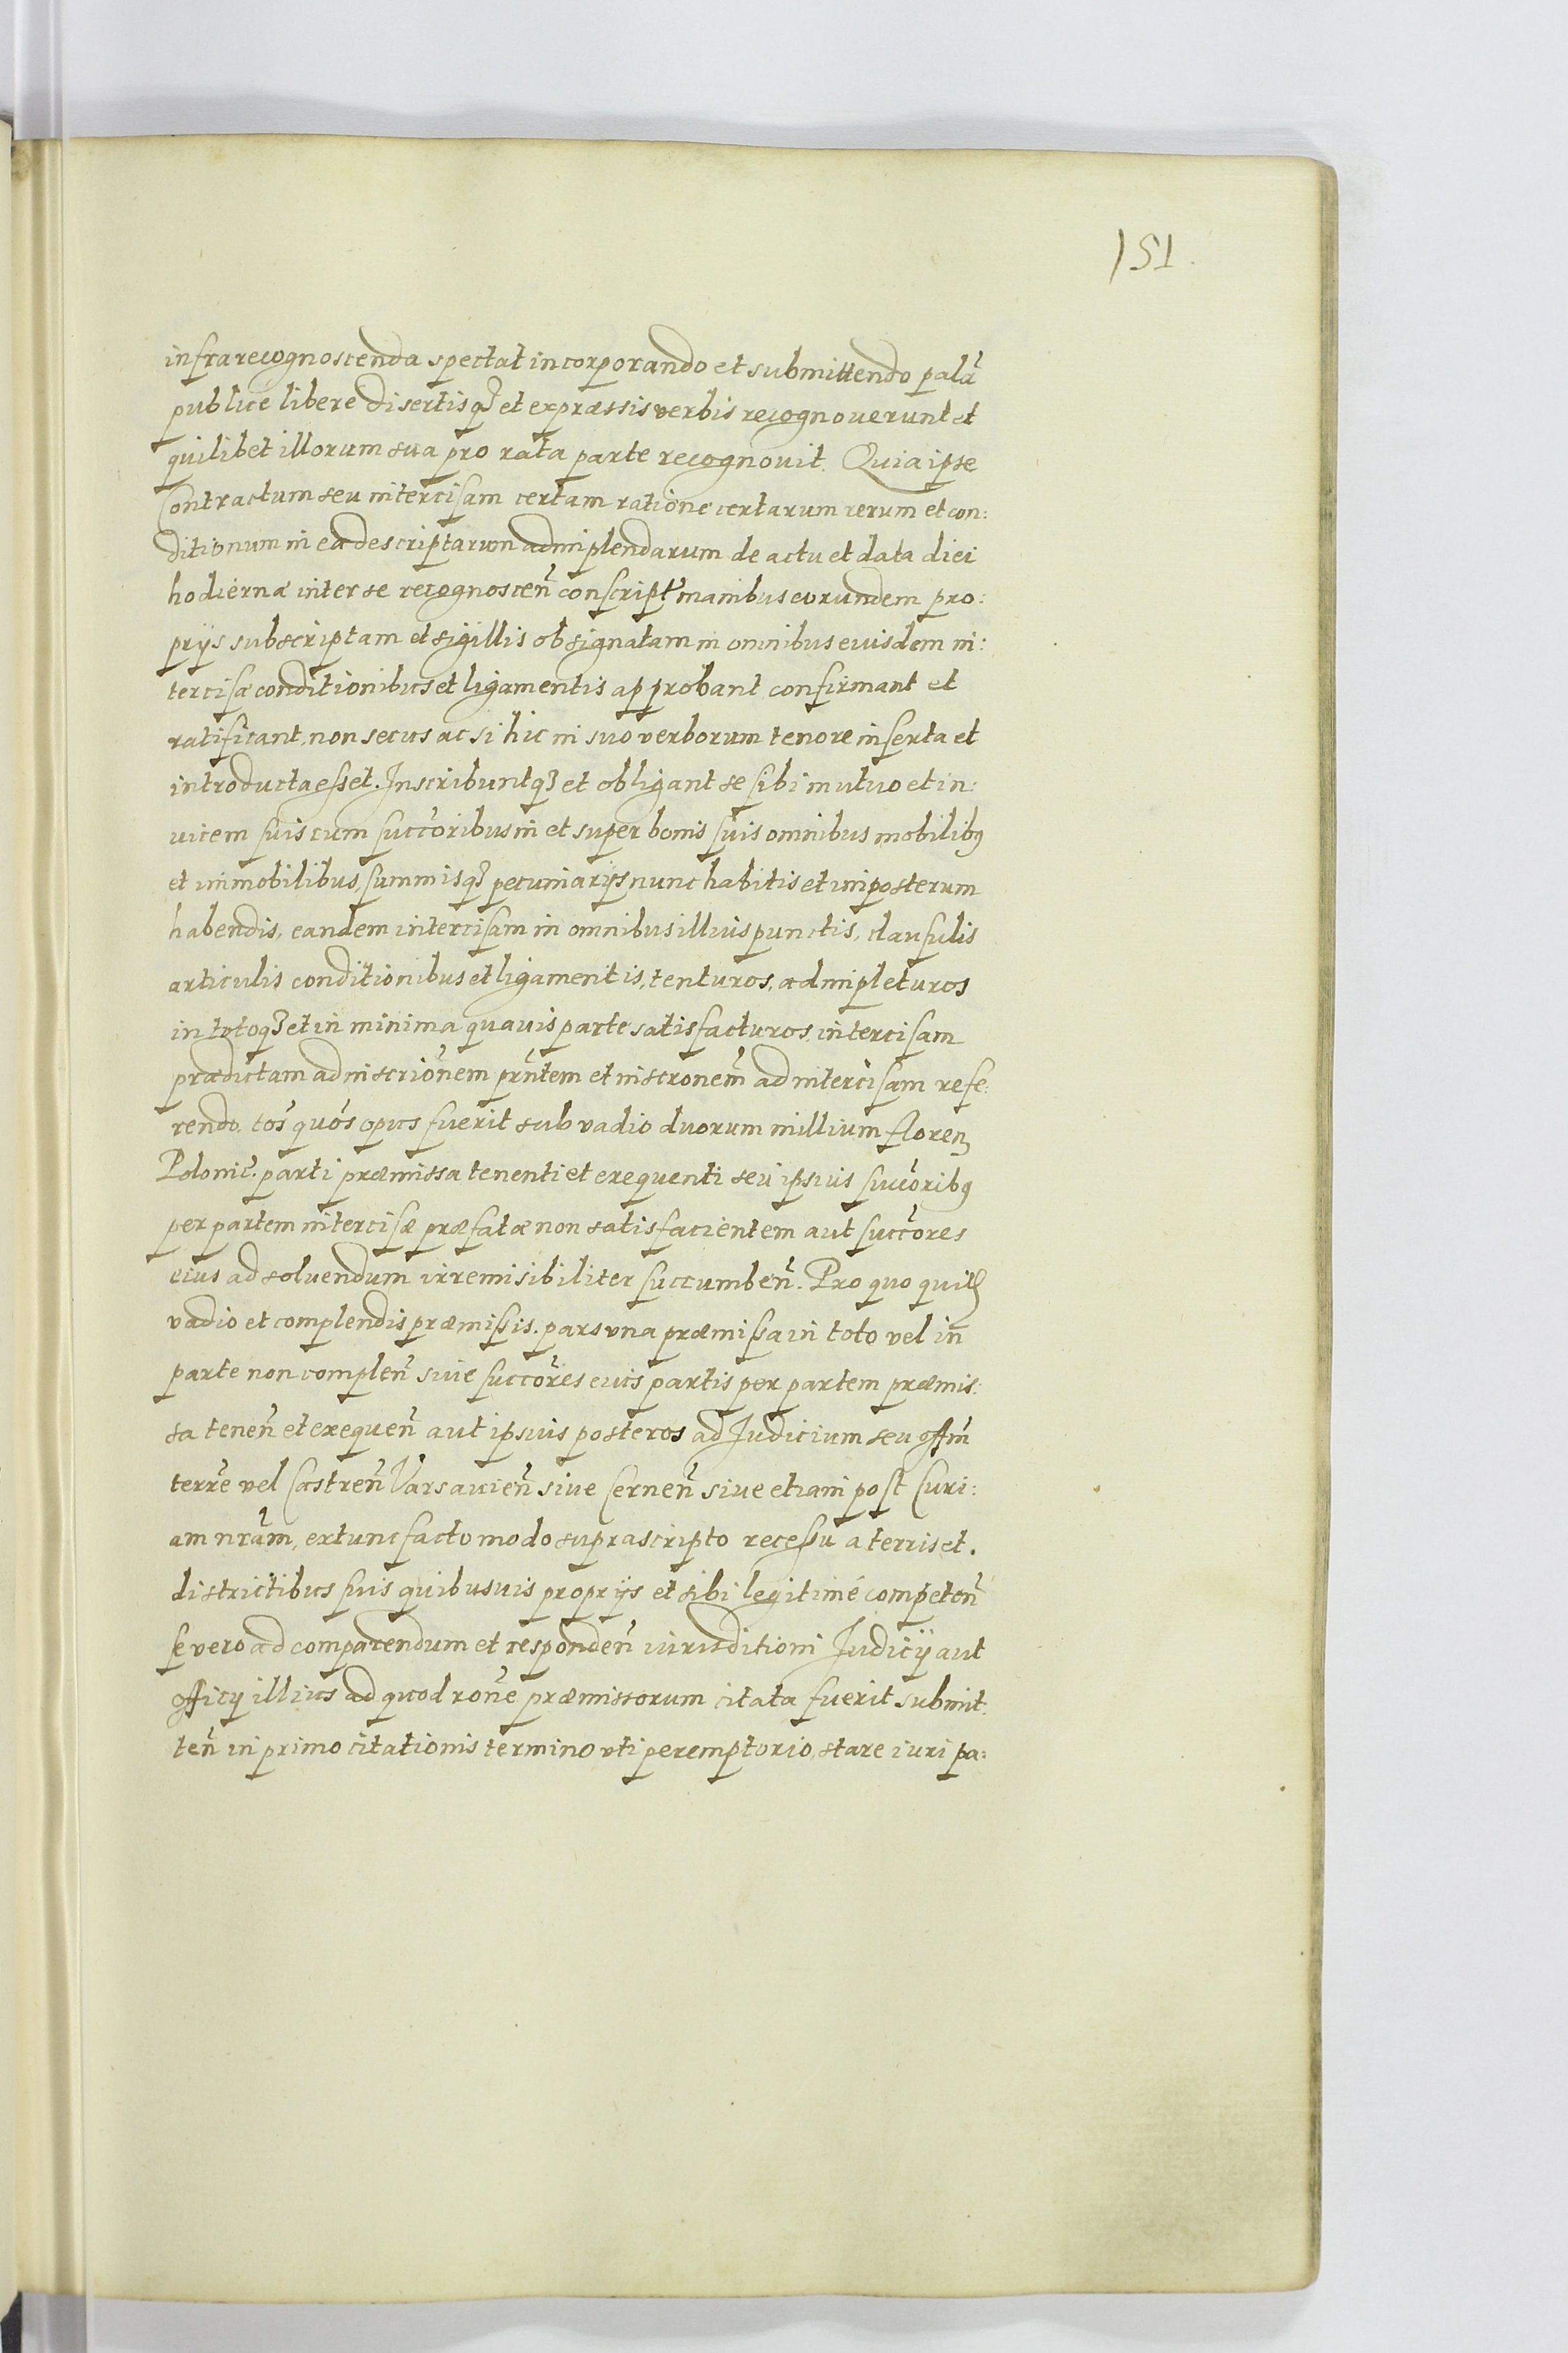 151.
infrarecognoscenda spectat incorporando et submittendo palã
publice libere disertisq3 et expressis verbis recognouerunt et
quilibet illorum sua pro rata parte recognouit. Quia ipse
Contractum seu intercisam certam ratione certarum rerum et con:
ditionum in ea descriptarum adimplendarum de actu et data diei
hodiernæ inter se recognoscen̄ conscript manibus eorundem pro:
prijs subscriptam et sigillis obsignatam in omnibus eiusdem in:
tercisæ conditionibus et ligamentis approbant confirmant et
ratificant, non secus ac si hic in suo verborum tenore inserta et
introducta esset. Inscribuntq3 et obligant se sibi mutuo et in:
uicem suis cum succoribus in et super bonis suis omnibus mobilibq
et immobilibus, summisq3 pecuniarijs nunc habitis et imposterum
habendis, eandem intercisam in omnibus illius punctis, clausulis
articulis conditionibus et ligamentis, tenturos, adimpleturos
in totoq3 et in minima quauis parte satisfacturos, intercisam
prædictam ad inscriōnem prñtem et inscronem̄ ad intercisam refe:
rendo, tos̄ quos̄ opus fuerit sub vadio duorum millium floren
Polonic̄. parti præmissa tenenti et exequenti seu ipsius succōribq
per partem intercisæ præfatæ non satisfacientem aut succōres
eius ad soluendum irremisibiliter succumben̄. Pro quo quid
vadio et complendis præmissis. pars vna præmissa in toto vel in
parte non complen̄ siue succōres eius partis per partem præmis:
sa tenen̄ et exequen̄ aut ipsius posteros ad Judicium seu offm̄
terre̅ vel Castren̄ Varsauien̄ siue Cernen̄ siue etiam post Curi:
am nrām, extunc facto modo suprascripto recessu a terris et.
districtibus suis quibusuis proprijs et sibi legitimè competen̄
se vero ad comparendum et responden̄ iurisditioni Judicij aut
officij illius ad quod rōne præmissorum citata fuerit submit
ten̄ in primo citationis termino vti peremptorio, stare iuri pa: